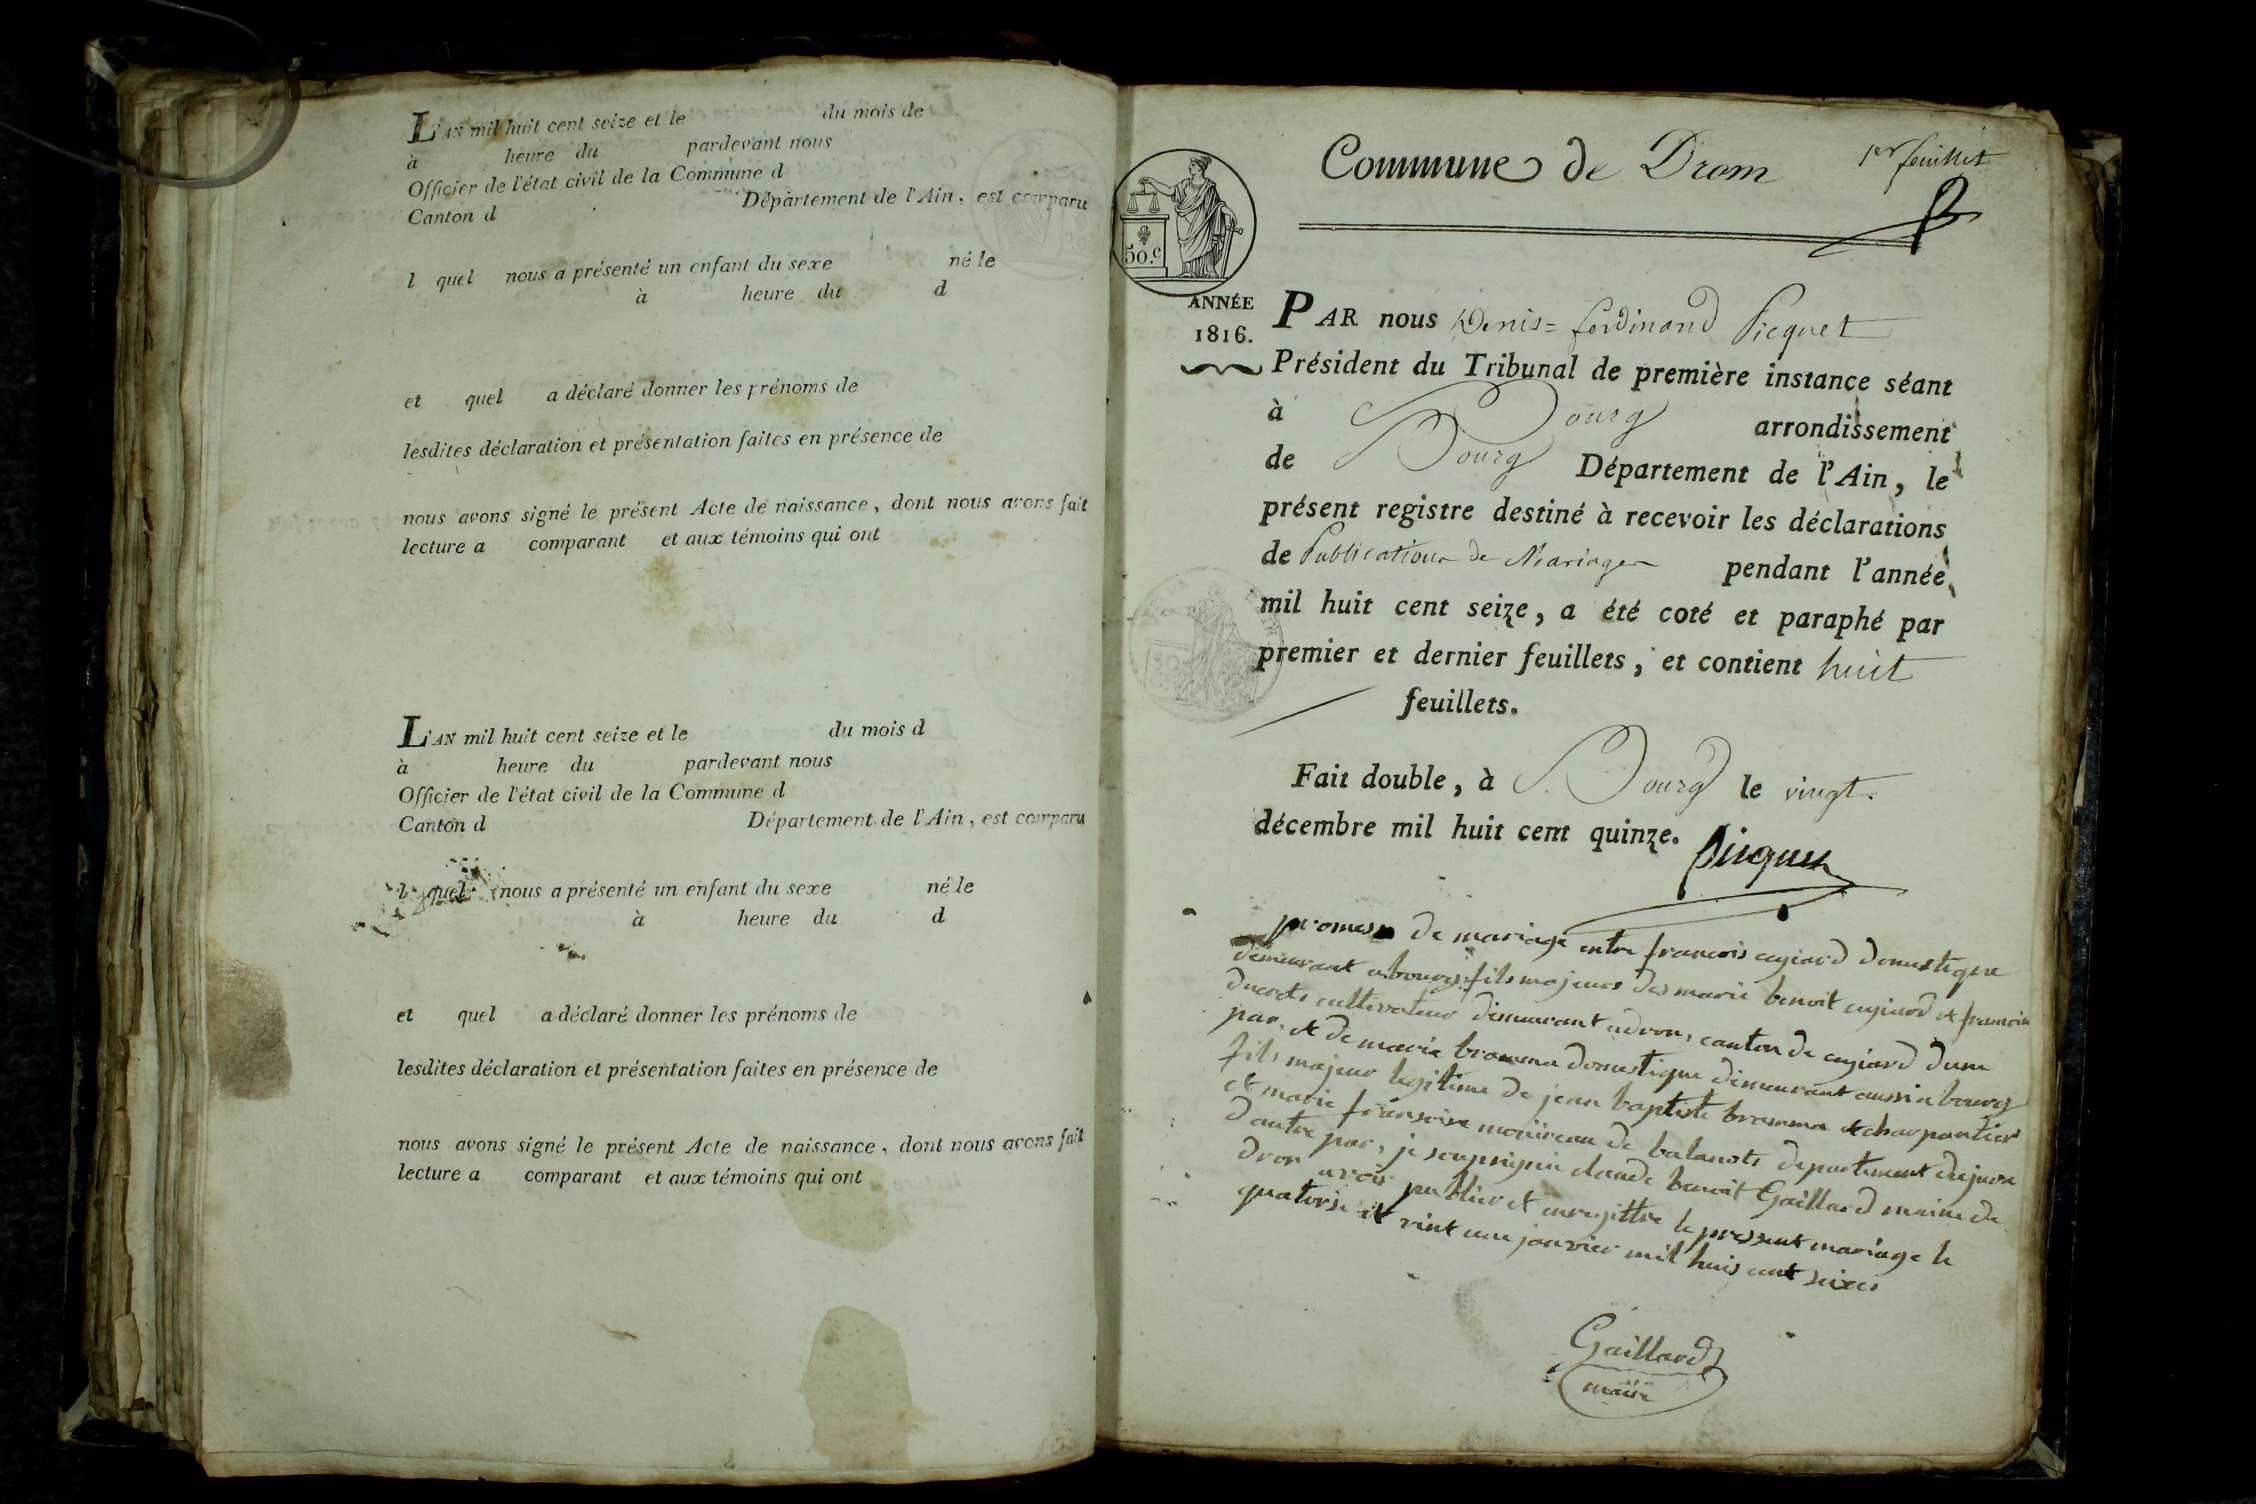 L'AN mil huit cent seize et le du mois de
à heure du pardevant nous
Officier de l'état civil de la Commune d
Canton d Département de l'Ain, est comparu
l quel nous a présenté un enfant du sexe né le
à heure du d
et quel a déclaré donner les prénoms de
lesdites déclaration et présentation faites en présence de
nous avons signé le présent Acte de naissance, dont nous avons fait
lecture a comparant et aux témoins qui ont
L'AN mil huit cent seize et le du mois d
à heure du pardevant nous
Officier de l'état civil de la Commune d
Canton d Département de l'Ain, est comparu
l quel nous a présenté un enfant du sexe né le
à heure du d
et quel a déclaré donner les prénoms de
lesdites déclaration et présentation faites en présence de
nous avons signé le présent Acte de naissance, dont nous avons fait
lecture a comparant et aux témoins qui ont
Commune de Drom 1er feuillet
50.c
ANNÉE
1816.
PAR nous Denis=ferdinand Picquet
Président du Tribunal de première instance séant
à Bourg arrondissement
de Bourg Département de l'Ain, le
présent registre destiné à recevoir les déclarations
de Publications de Mariages pendant l'année
mil huit cent seize, a été coté et paraphé par
premier et dernier feuillets, et contient huit
feuillets.
Fait double, à Bourg le vingt.
décembre mil huit cent quinze. Picquet
promesse de mariage entre francois cugiard domestique
demeurant abourg fils majeurs des marie benoit cugiard et francoise
cultivateur demeurant adrom, canton de d'une
par, et de marie bramma domestique demeurant aussi a bourg
fils majeur legitime de jean baptiste bramma charpantier
et marie de departement dujura
dautre par, je claude benoit Gaillard maire de
drom avoir publier et enregittre le present mariage le
quatorse et vint une janvier mil huis cent seize
Gaillard
maire